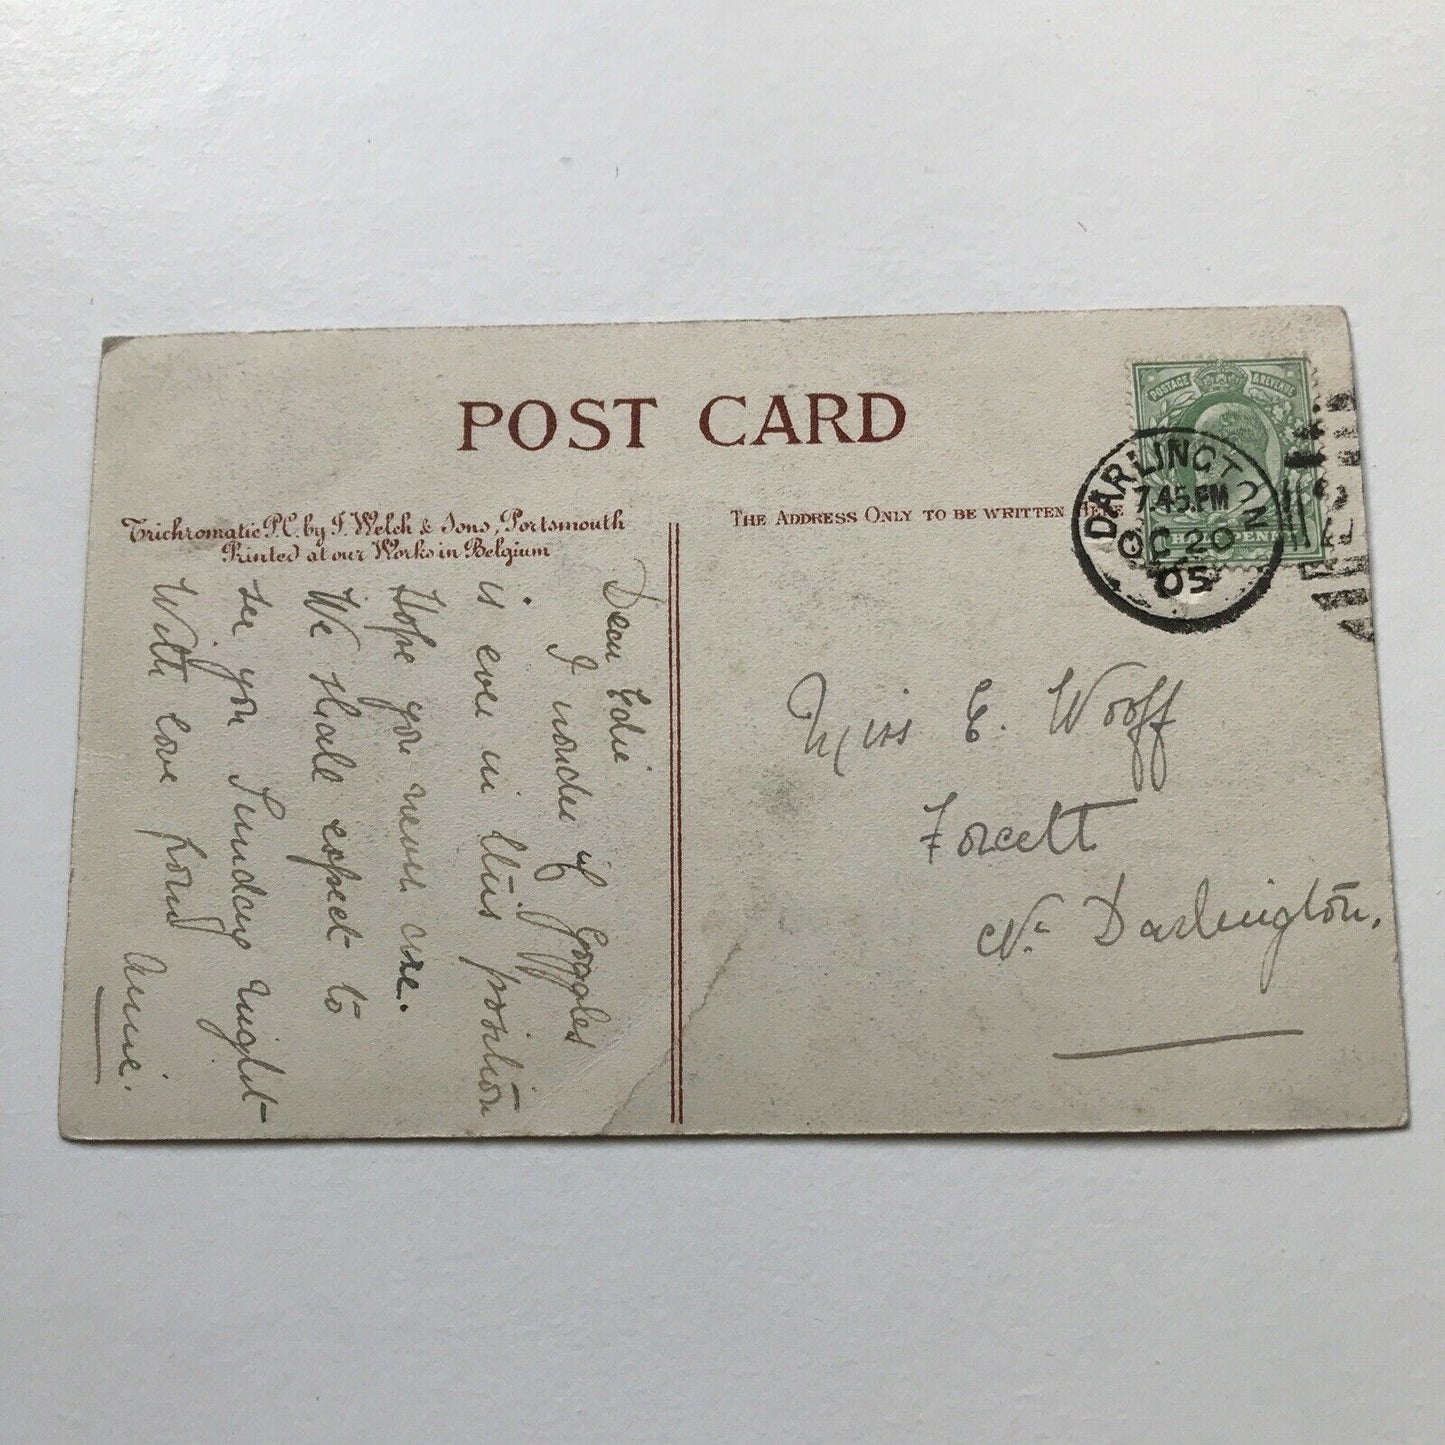 POST CARD
Trichromatic P.C. by J. Welch & Sons, Portsmouth
Printed at our Works in Belgium
THE ADDRESS ONLY TO BE WRITTEN HERE
POSTAGE & REVENUE
HALFPENNY
DARLINGTON
7.45.PM
OC 20
05
Dear Edie
I wonder if Goggles
is ever in this position
Hope you never are.
We shall expect to
see you Sunday night
With love from
Annie.
Miss E. Wooff
Forcett
Nr Darlington,